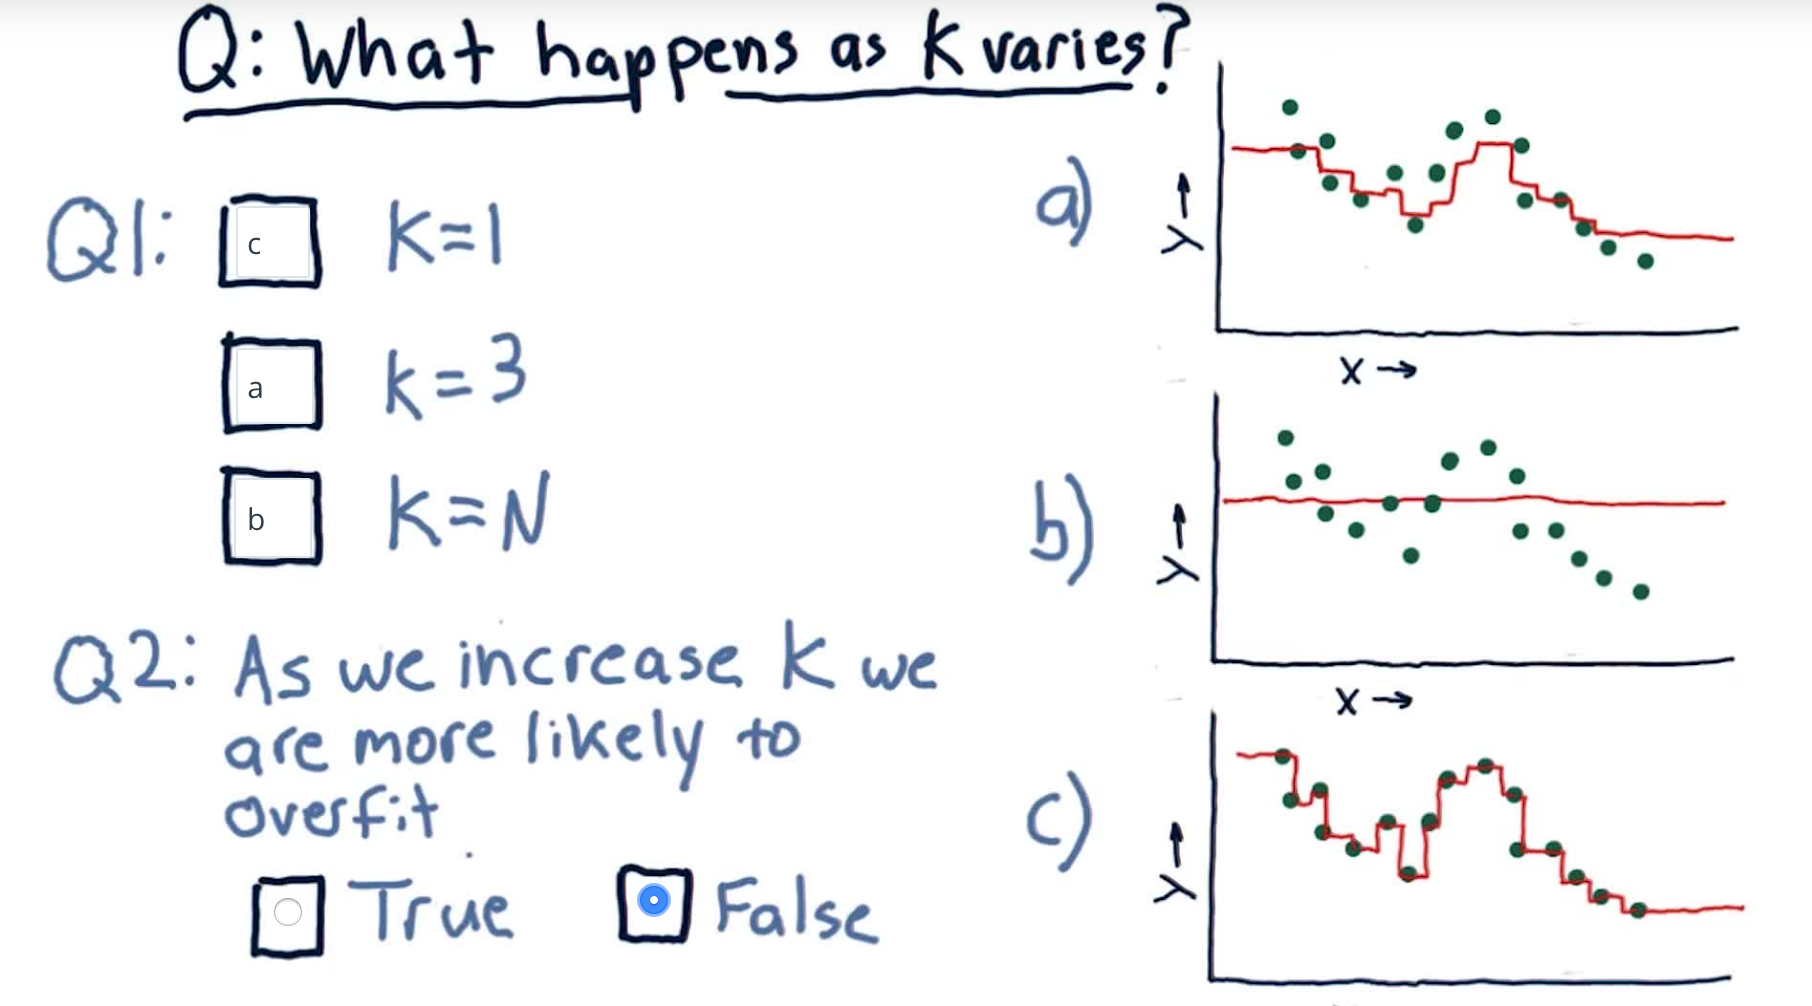 Q: What happens as K varies?
Q1: c K=1
a K=3
b K=N
Q2: As we increase K we
are more likely to
overfit
True False
a)
Y→
X→
b)
Y→
X→
c)
Y→